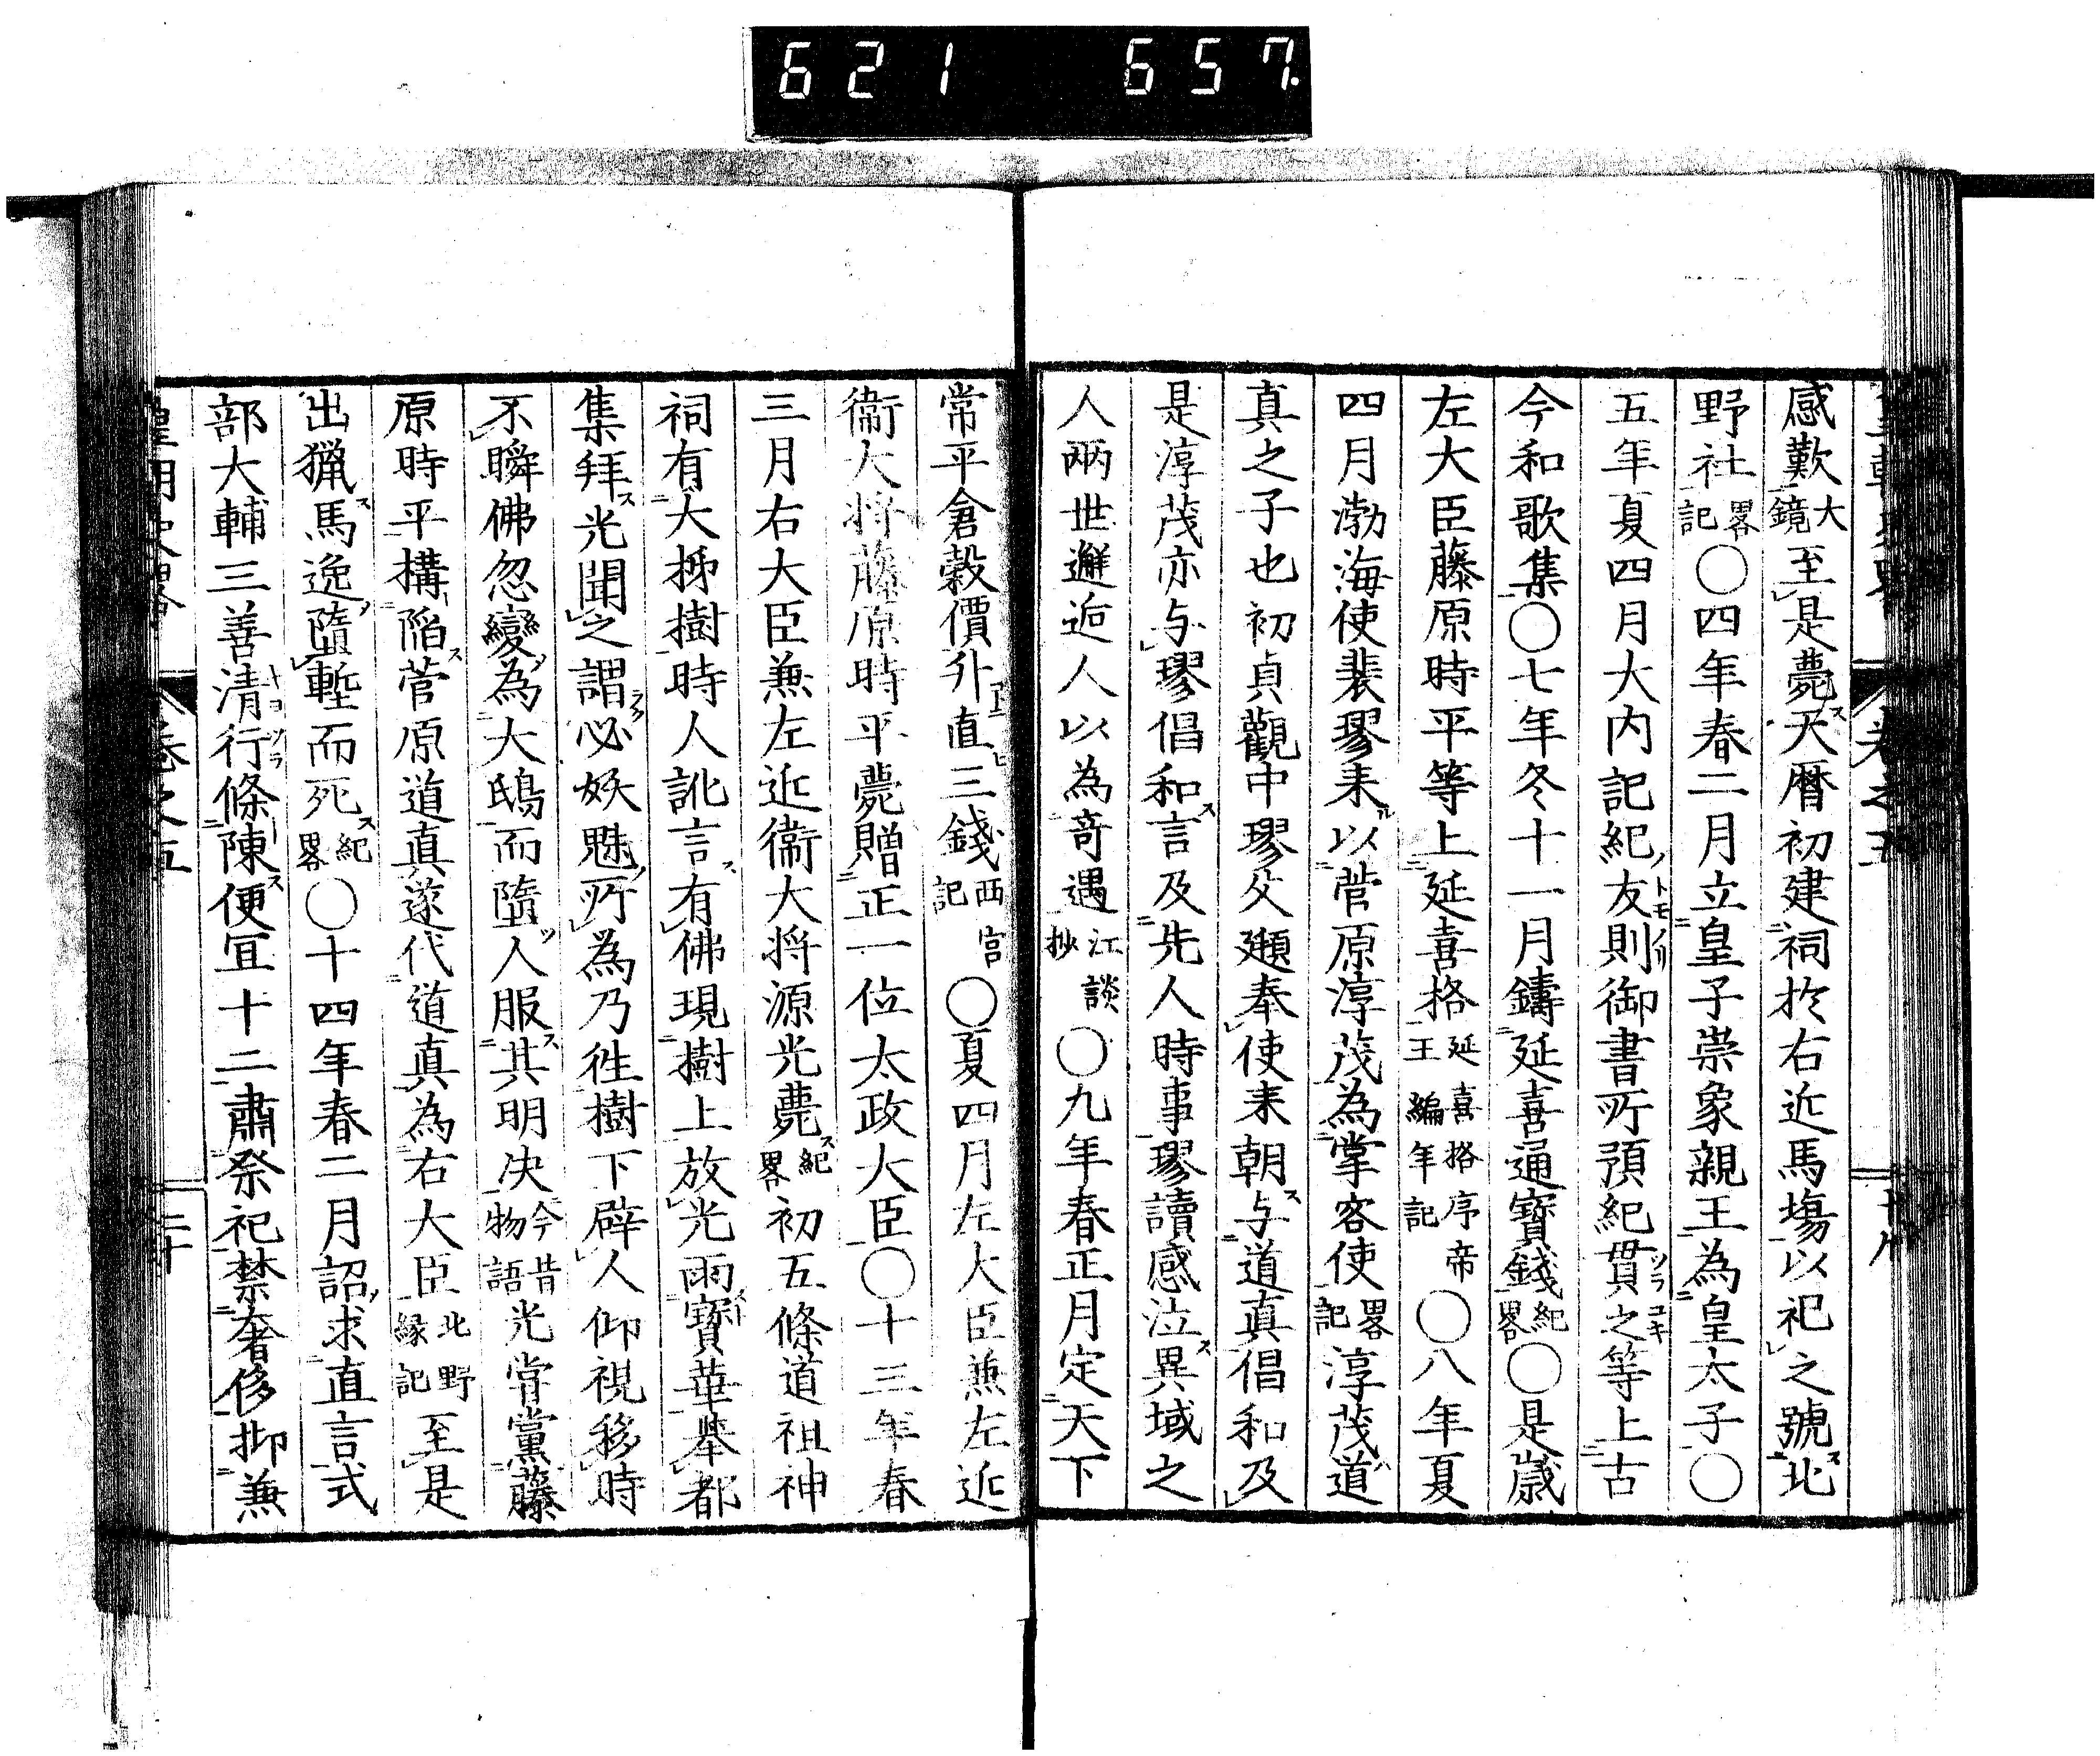 621 657
感歎大鏡至是薨天暦初建祠於右近馬塲以祀之號北
野社畧記〇四年春二月立皇子崇象親王為皇太子〇
五年夏四月大内記紀友則御書所預紀貫之等上古
今和歌集〇七年冬十一月鑄延喜通寶錢紀畧〇是歳
左大臣藤原時平等上延喜格延喜格序帝王編年記〇八年夏
四月渤海使裴璆来以菅原淳茂為掌客使畧記淳茂道
真之子也初貞觀中璆父頲奉使来朝与道真倡和及
是淳茂亦与璆倡和言及先人時事璆讀感泣異域之
人兩世邂逅人以為竒遇江談抄〇九年春正月定天下
常平倉穀價升直三錢西宮記〇夏四月左大臣兼左近
衞大将藤原時平薨贈正一位太政大臣〇十三年春
三月右大臣兼左近衞大将源光薨紀畧初五條道祖神
祠有大柹樹時人訛言有佛現樹上放光雨寳華擧都
集拜光聞之謂必妖魅所為乃徃樹下辟人仰視移時
不瞬佛忽變為大鴟而墮人服其明决今昔物語光甞黨藤
原時平構陷菅原道真遂代道真為右大臣北野縁記至是
出獵馬逸墮塹而死紀畧〇十四年春二月詔求直言式
部大輔三善清行條陳便宜十二肅祭祀禁奢侈抑兼